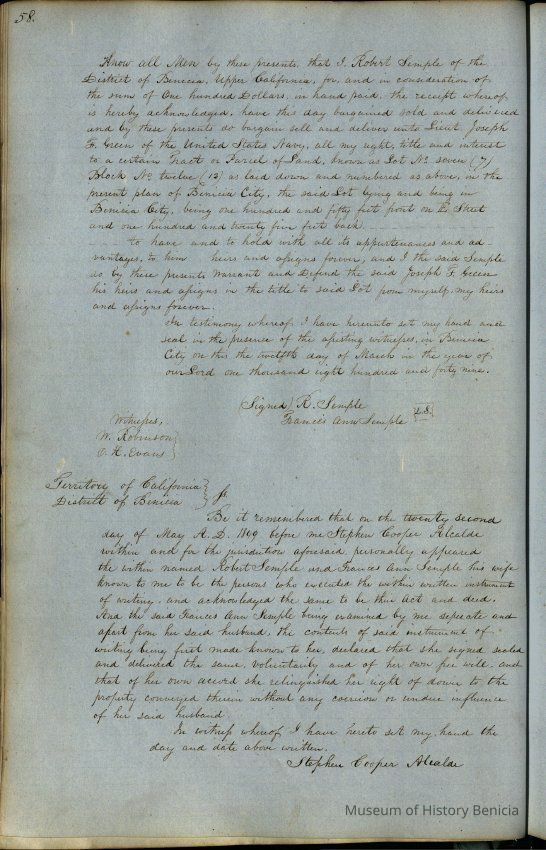 58.
Know all Men by these presents, that I, Robert Semple of the
District of Benicia, Upper California, for, and in consideration of
the sum of One hundred Dollars, in hand paid, the receipt whereof
is hereby acknowledged, have this day bargained sold and delivered
and by these presents do bargain sell and deliver unto Lieut. Joseph
F. Green of the United States Navy, all my right, title and interest
to a certain Tract or Parcel of Land, known as Lot No. seven (7)
Block No. twelve (12) as laid down and numbered as above, in the
present plan of Benicia City, the said Lot lying and being in
Benicia City, being one hundred and fifty feet front on D. Street
and one hundred and twenty five feet back
to have and to hold with all its appurtenances and ad-
vantages, to him heirs and assigns forever, and I the said Semple
do by these presents Warrant and Defend the said Joseph F. Green
his heirs and assigns in the title to said Lot from myself, my heirs
and assigns forever.
In testimony whereof, I have hereunto set my hand and
seal in the presence of the attesting witnesses, in Benicia
City on this the twelfth day of March in the year of
our Lord one thousand eight hundred and forty nine.
(Signed) R. Semple
Frances Ann Semple L.S.
Witnesses,
W. Robinson
O. H. Evans
Territory of California
District of Benicia } Ss.
Be it remembered that on the twenty second
day of May A. D. 1849 before me Stephen Cooper Alcalde
within and for the jurisdiction aforesaid personally appeared
the within named Robert Semple and Frances Ann Semple his wife
known to me to be the persons who executed the within written instrument
of writing, and acknowledged the same to be their act and deed.
And the said Frances Ann Semple being examined by me seperate and
apart from her said husband, the contents of said instrument of
writing being first made known to her, declared that she signed sealed
and delivered the same, voluntarily and of her own free will, and
that of her own accord she relinquished her right of dower to the
property conveyed therein without any coercion or undue influence
of her said husband.
In witness whereof I have hereto set my hand the
day and date above written.
Stephen Cooper Alcalde
Museum of History Benicia